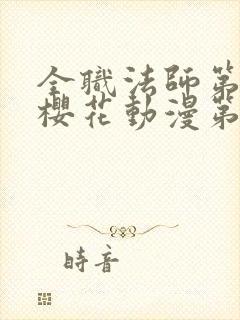 全職法師第
櫻花動漫第
時音